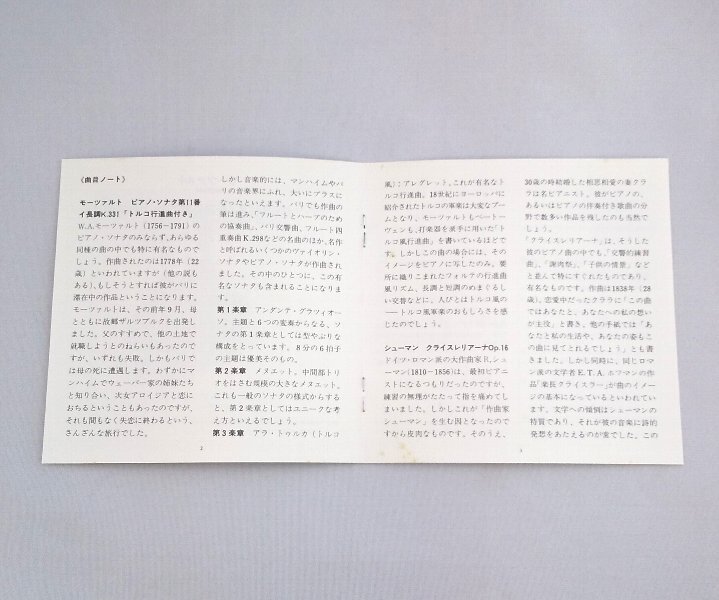 〈曲目ノート〉
モーツァルト ピアノ・ソナタ第11番
イ長調K.331「トルコ行進曲付き」
W.A.モーツァルト（1756―1791）の
ピアノ・ソナタのみならず、あらゆる
同種の曲の中でも特に有名なもので
しょう。作曲されたのは1778年（22
歳）といわれていますが（他の説も
ある）、もしそうとすれば彼がパリに
滞在中の作品ということになります。
モーツァルトは、その前年9月、母
とともに故郷ザルツブルクを出発し
ました。父のすすめで、他の土地で
就職しようとのねらいもあったので
すが、いずれも失敗。しかもパリで
は母の死に遭遇します。わずかにマ
ンハイムでウェーバー家の姉妹たち
と知り合い、次女アロイジアと恋に
おちるということもあったのですが、
それも間もなく失恋に終わるという、
さんざんな旅行でした。
しかし音楽的には、マンハイムやパ
リの音楽界にふれ、大いにプラスに
なったといえます。パリでも作曲の
筆は進み、「フルートとハープのため
の協奏曲」、パリ交響曲、フルート四
重奏曲K.298などの名曲のほか、名作
と呼ばれるいくつかのヴァイオリン・
ソナタやピアノ・ソナタが作曲され
ました。その中のひとつに、この有
名なソナタも含まれることになりま
す。
第1楽章 アンダンテ・グラツィオー
ソ。主題と6つの変奏からなる、ソ
ナタの第1楽章としては型やぶりな
構成をとっています。8分の6拍子
の主題は優美そのもの。
第2楽章 メヌエット。中間部トリ
オをはさむ規模の大きなメヌエット。
これも一般のソナタの様式からする
と、第2楽章としてはユニークな考
え方といえるでしょう。
第3楽章 アラ・トゥルカ（トルコ
2
風）：アレグレット。これが有名なト
ルコ行進曲。18世紀にヨーロッパに
紹介されたトルコの軍楽は大変なブー
ムとなり、モーツァルトもベートー
ヴェンも、打楽器を派手に用いた「ト
ルコ風行進曲」を書いているほどで
す。しかしこの曲の場合には、その
イメージをピアノに写したのみ。要
所に織りこまれたフォルテの行進曲
風リズム、長調と短調のめまぐるし
い交替などに、人びとはトルコ風の
――トルコ風軍楽のおもしろさを感
じたのでしょう。
シューマン クライスレリアーナOp.16
ドイツ・ロマン派の大作曲家R.シュ
ーマン（1810―1856）は、最初ピアニ
ストになるつもりだったのですが、
練習の無理がたたって指を痛めてし
まいました。しかしこれが「作曲家
シューマン」を生む因となったので
すから皮肉なものです。そのうえ、
30歳の時結婚した相思相愛の妻クラ
ラは名ピアニスト。彼がピアノの、
あるいはピアノの伴奏付き歌曲の分
野で数多い作品を残したのも当然で
しょう。
「クライスレリアーナ」は、そうした
彼のピアノ曲の中でも、「交響的練習
曲」、「謝肉祭」、「子供の情景」など
と並んで特にすぐれたものであり、
有名なものです。作曲は1838年（28
歳）、恋愛中だったクララに「この曲
ではあなたと、あなたへの私の想い
が主役」と書き、他の手紙では「あ
なたと私の生活や、あなたの姿もこ
の曲に見てとれるでしょう」とも書
きました。しかし同時に、同じロマ
ン派の文学者E.T.A.ホフマンの作
品「楽長クライスラー」が曲のイメー
ジの基本になっているといわれてい
ます。文学への傾倒はシューマンの
特質であり、それが彼の音楽に詩的
発想をあたえるのが常でした。この
3